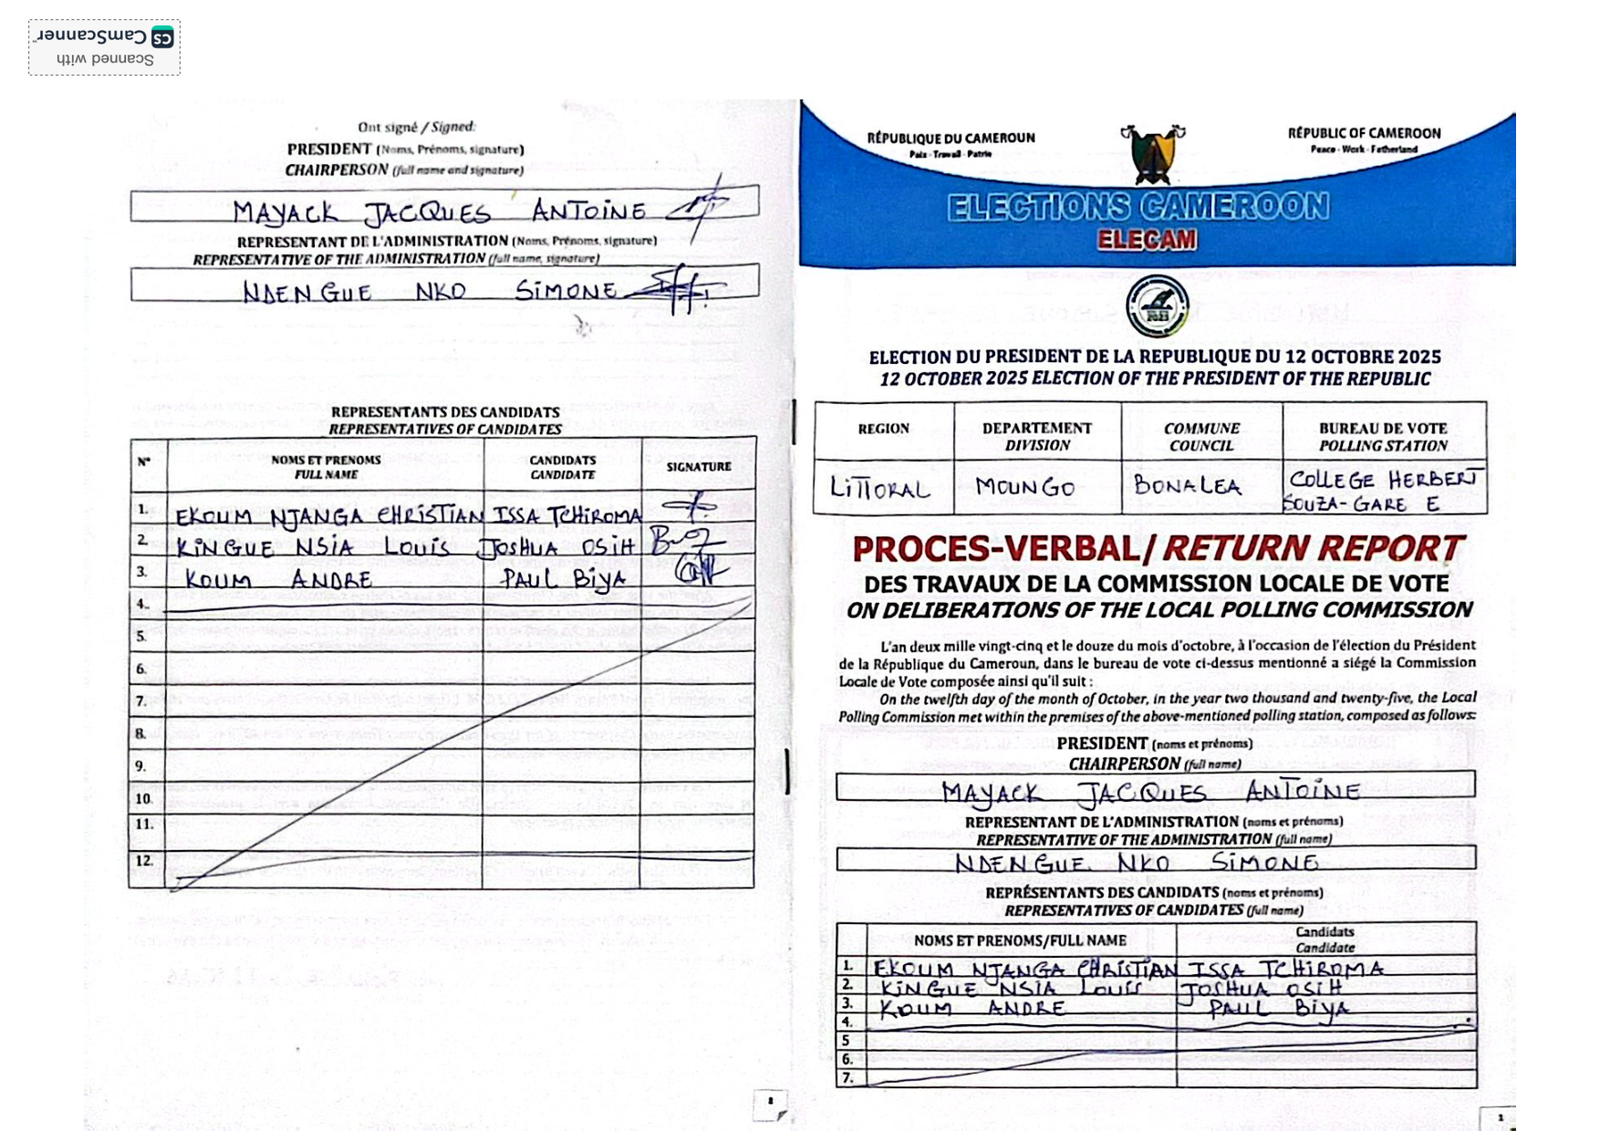 Scanned with
CS CamScanner
Ont signé / Signed:
PRESIDENT (Noms, Prénoms, signature)
CHAIRPERSON (full name and signature)
MAYACK JACQUES ANTOINE
REPRESENTANT DE L'ADMINISTRATION (Noms, Prénoms, signature)
REPRESENTATIVE OF THE ADMINISTRATION (full name, signature)
NDENGUE NKO SIMONE
REPRESENTANTS DES CANDIDATS
REPRESENTATIVES OF CANDIDATES
N° NOMS ET PRENOMS FULL NAME CANDIDATS CANDIDATE SIGNATURE
1. EKOUM NJANGA CHRISTIAN ISSA TCHIROMA
2. KINGUE NSIA LOUIS JOSHUA OSIH
3. KOUM ANDRE PAUL BIYA
4.
5.
6.
7.
8.
9.
10.
11.
12.
8
RÉPUBLIQUE DU CAMEROUN
Paix - Travail - Patrie
RÉPUBLIC OF CAMEROON
Peace - Work - Fatherland
ELECTIONS CAMEROON
ELECAM
2025
ELECTION DU PRESIDENT DE LA REPUBLIQUE DU 12 OCTOBRE 2025
12 OCTOBER 2025 ELECTION OF THE PRESIDENT OF THE REPUBLIC
REGION DEPARTEMENT DIVISION COMMUNE COUNCIL BUREAU DE VOTE POLLING STATION
LITTORAL MOUNGO BONALEA COLLEGE HERBERT SOUZA-GARE E
PROCES-VERBAL/ RETURN REPORT
DES TRAVAUX DE LA COMMISSION LOCALE DE VOTE
ON DELIBERATIONS OF THE LOCAL POLLING COMMISSION
L'an deux mille vingt-cinq et le douze du mois d'octobre, à l'occasion de l'élection du Président
de la République du Cameroun, dans le bureau de vote ci-dessus mentionné a siégé la Commission
Locale de Vote composée ainsi qu'il suit :
On the twelfth day of the month of October, in the year two thousand and twenty-five, the Local
Polling Commission met within the premises of the above-mentioned polling station, composed as follows:
PRESIDENT (noms et prénoms)
CHAIRPERSON (full name)
MAYACK JACQUES ANTOINE
REPRESENTANT DE L'ADMINISTRATION (noms et prénoms)
REPRESENTATIVE OF THE ADMINISTRATION (full name)
NDENGUE NKO SIMONE
REPRÉSENTANTS DES CANDIDATS (noms et prénoms)
REPRESENTATIVES OF CANDIDATES (full name)
NOMS ET PRENOMS/FULL NAME Candidats Candidate
1. EKOUM NJANGA CHRISTIAN ISSA TCHIROMA
2. KINGUE NSIA LOUIS JOSHUA OSIH
3. KOUM ANDRE PAUL BIYA
4.
5
6.
7.
1